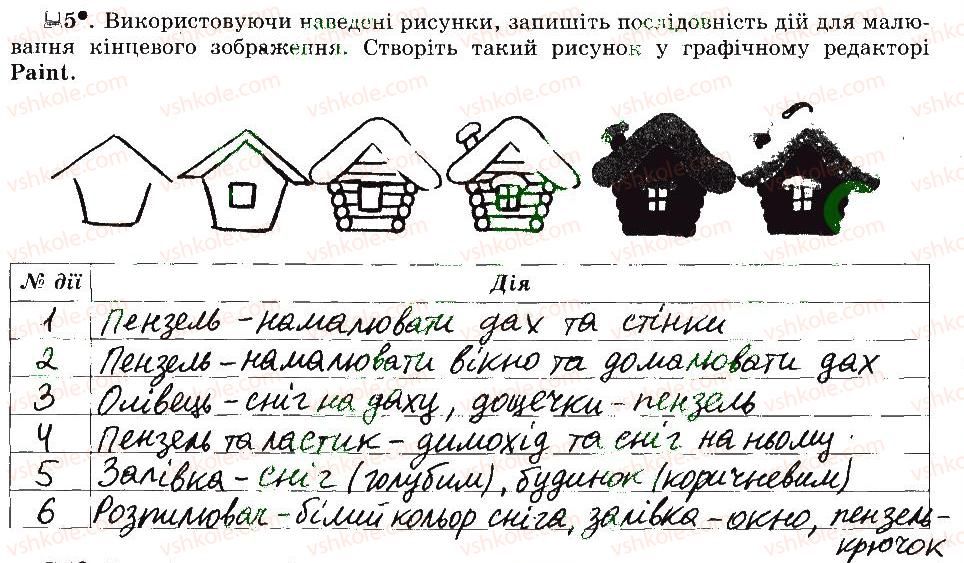 5•. Використовуючи наведені рисунки, запишіть послідовність дій для малю-
вання кінцевого зображення. Створіть такий рисунок у графічному редакторі
Paint.
№ дії Дія
1 Пензель – намалювати дах та стінки
2 Пензель – намалювати вікно та домалювати дах
3 Олівець – сніг на даху, дощечки – пензель
4 Пензель та ластик – димохід та сніг на ньому.
5 Залівка – сніг (голубим), будинок (коричневим)
6 Розпилювач – білий кольор сніга, залівка – окно, пензель –
крючок